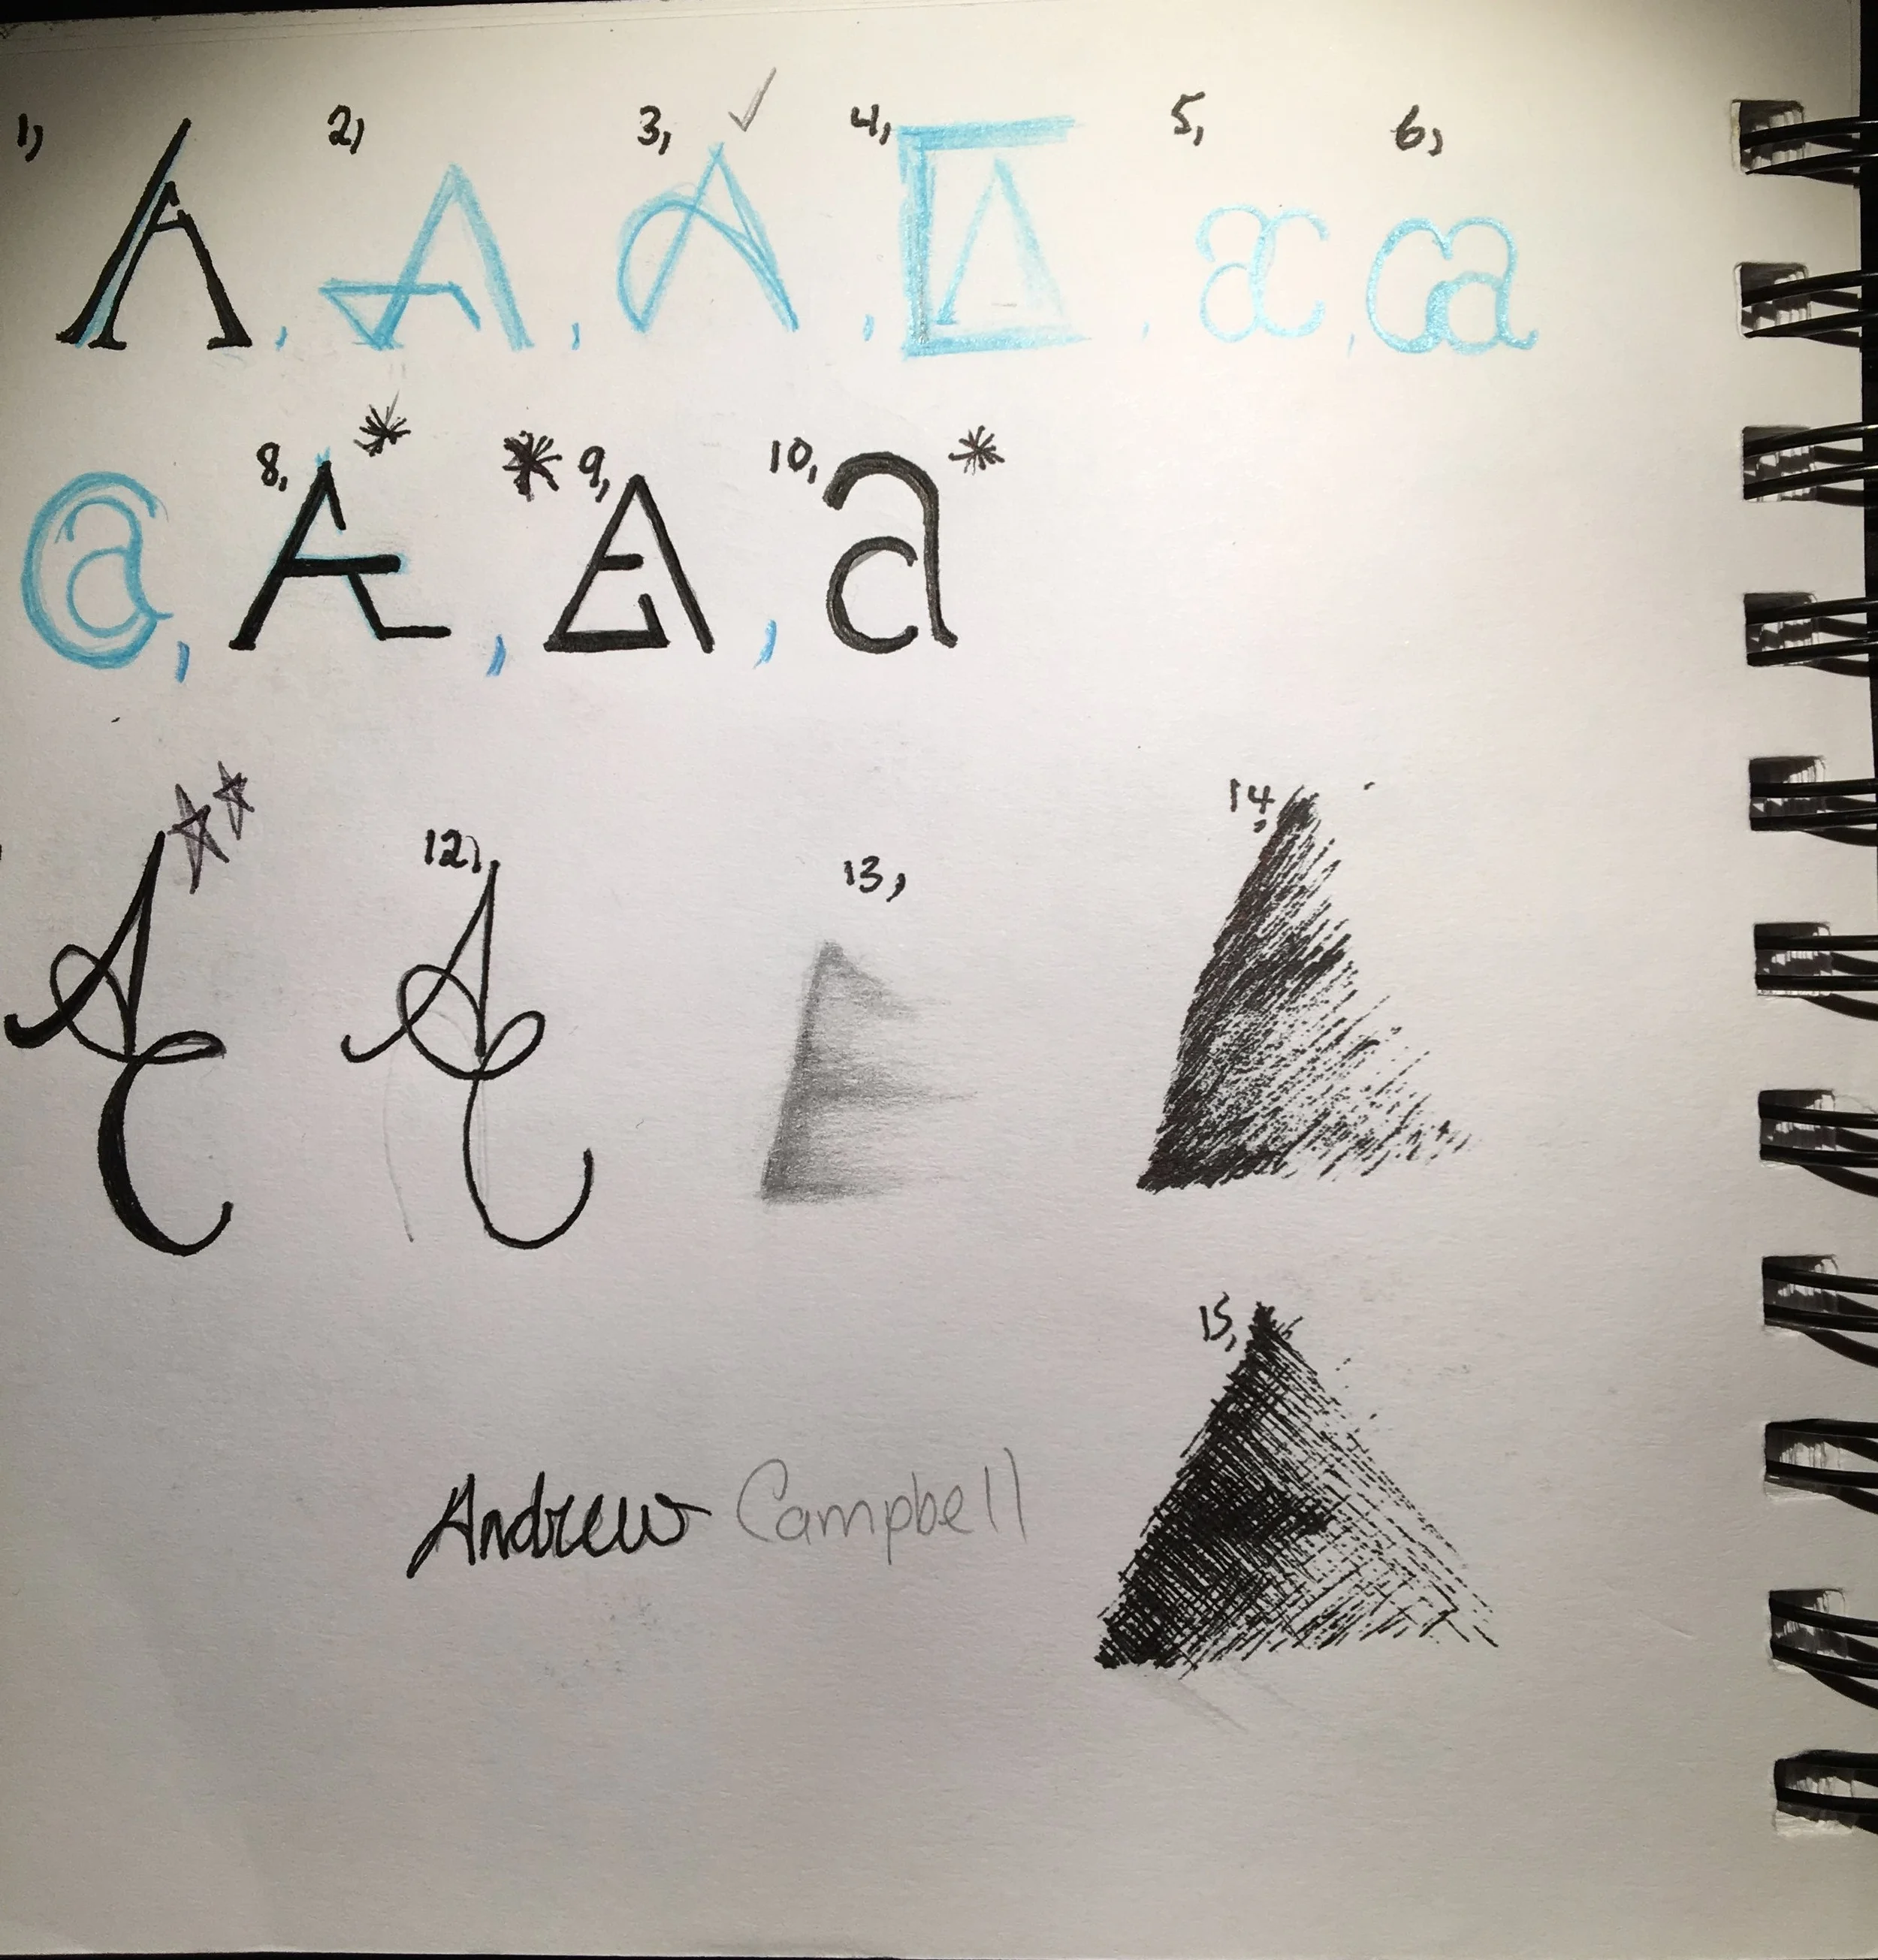 1, 2, 3, 4, 5, 6,
A, A, A, A, a, ca
a, 8, A, 9, A, 10, a
A 12, A 13, 14,
15,
Andrew Campbell